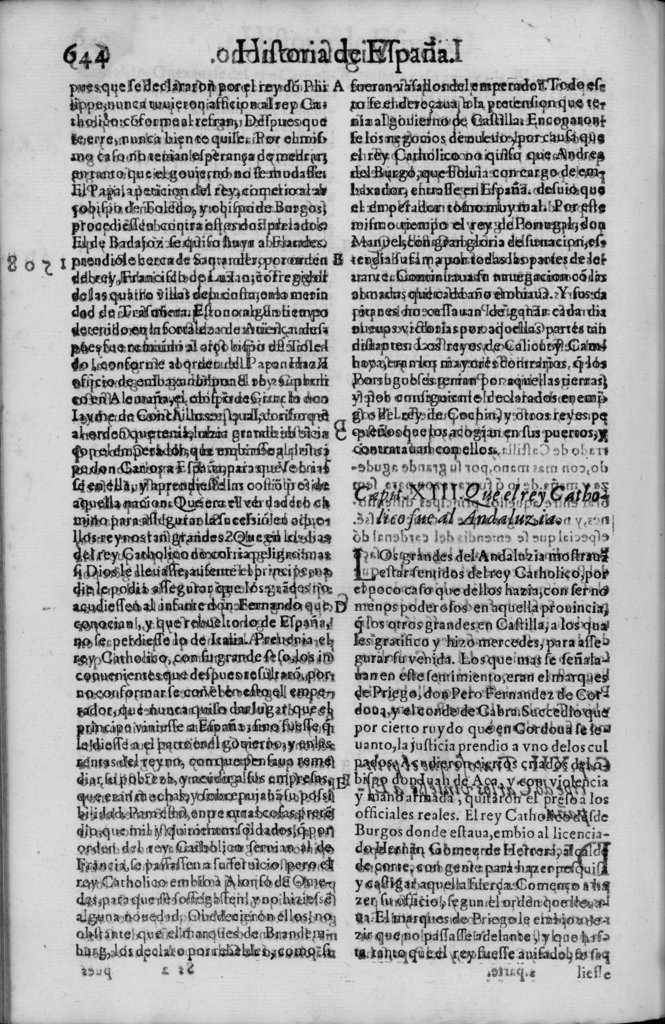 644
Historia de España.
pues que se declararon por el rey dõ Phi
lippe, nunca tuuieron afficion al rey Ca-
tholico, cõforme al refran, Despues que
te erre, nunca bien te quise. Por el mis-
mo caso no tenian esperança de medrar,
entanto que el gouierno no se mudasse.
El Papa, a peticion del rey, cometio al ar
çobispo de Toledo, y obispo de Burgos,
procediessen contra estos dos prelados.
El de Badajoz se quiso huyr a Flandes,
prendiole cerca de Santander, por orden
del rey, Francisco de Luxan, corregidor
de las quatro villas de la costa, en la merin
dad de Trasmiera. Estuuo algun tiempo
detenido en la fortaleza de
pues fue remitido al arçobispo de Toled
do, conforme al orden del Papa.
officio de embaxador por el rey Catholi
co en Alemaña, el obispo de Girachi don
Iayme de Conchillos: el qual, conforme
al orden que tenia, hazia grande instancia
con el emperador, que embiasse al princi-
pe don Carlos a España, para que se crias
se en ella, y aprendiesse las costumbres de
aquella nacion. Que era el verdadero ca
mino para assegurar la sucession de aque-
llos reynos tan grandes. Que en los dias
del rey Catholico no corria peligro: mas
si Dios le lleuasse, ausente el principe, na
die le podia assegurar que los grãdes no
acudiessen al infante don Fernando que
conocian, y que rebuelto lo de España,
no se perdiesse lo de Italia. Preuenia el
rey Catholico, con su grande seso, los in
conuenientes que despues resultarõ, por
no conformarse con el en esto el empe-
rador, que nunca quiso dar lugar que el
principe viniesse a España, sino fuesse q̃
le diesse a el parte en el gouierno, y en las
rentas del reyno, con que pensaua reme
diar su pobreza, y acudir a sus empresas,
que eran muchas, y sobrepujaban su possi
bilidad. Para esto, entre otras cosas pretẽ
dio, que mil y quinientos soldados, q̃ por
orden del rey Catholico seruian al de
Francia, se passassen a su seruicio: pero el
rey Catholico embio a Alonso de Ome-
des, para que se sossegassen, y no hiziessẽ
alguna nouedad. Obedecieron ellos: no
obstante que el marques de Brandem-
burg, los declaro por rebeldes, como si
1508
A
B
C
D
E
fueran vasallos del emperador. Todo es
to se enderoçaua a la pretension que te-
nia al gouierno de Castilla. Enconaron
se los negocios de nueuo, por causa que
el rey Catholico no quiso que Andrea
del Burgo, que boluia con cargo de em-
baxador, entrasse en España, desuio que
el emperador tomo muy mal. Por este
mismo tiempo el rey de Portugal, don
Manuel, con gran gloria de su nacion, es-
tendia su fama por todas las partes de le-
uante. Continuaua su nauegacion cõ las
armadas, que cada año embiaua. Y sus ca
pitanes no cessauan de ganar cada dia
nueuas victorias por aquellas partes tan
distantes. Los reyes de Calicut, y Cam-
baya, eran los mayores contrarios, q̃ los
Portugueses tenian por aquellas tierras,
y por consiguiente declarados enemi-
gos del rey de Cochin, y otros reyes pe
queños que los acogian en sus puertos, y
contratauan con ellos.
Capit. XIII. Que el rey Catho-
lico fue al Andaluzia.
LOs grandes del Andaluzia mostrauã
estar sentidos del rey Catholico, por
el poco caso que dellos hazia, con ser no
menos poderosos en aquella prouincia,
q̃ los otros grandes en Castilla, a los qua
les gratifico y hizo mercedes, para asse-
gurar su venida. Los que mas se señala-
uan en este sentimiento, eran el marques
de Priego, don Pero Fernandez de Cor
doua, y el conde de Cabra. Succedio que
por cierto ruydo que en Cordoua se le-
uanto, la justicia prendio a vno de los cul
pados. Acudieron ciertos criados del o-
bispo don Iuan de Aça, y con violencia
y mano armada, quitaron el preso a los
officiales reales. El rey Catholico des de
Burgos donde estaua, embio al licencia-
do Hernan Gomez de Herrera, alcalde
de corte, con gente para hazer pesquisa
y castigar aquella fuerça. Començo a ha
zer su officio, segun el orden que lleua-
ua. El marques de Priego le embio a de-
zir que no passasse adelante, y que has-
ta tanto que el rey fuesse auisado, se sa
2.parte.
Ss 2
liesse